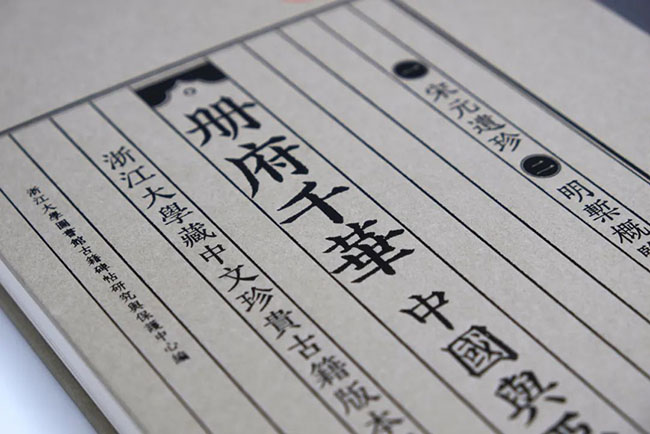 一 宋元遺珍 二 明槧概
册府千華 中國與
浙江大學藏中文珍貴古籍版本
浙江大學圖書館古籍碑帖研究與保護中心編